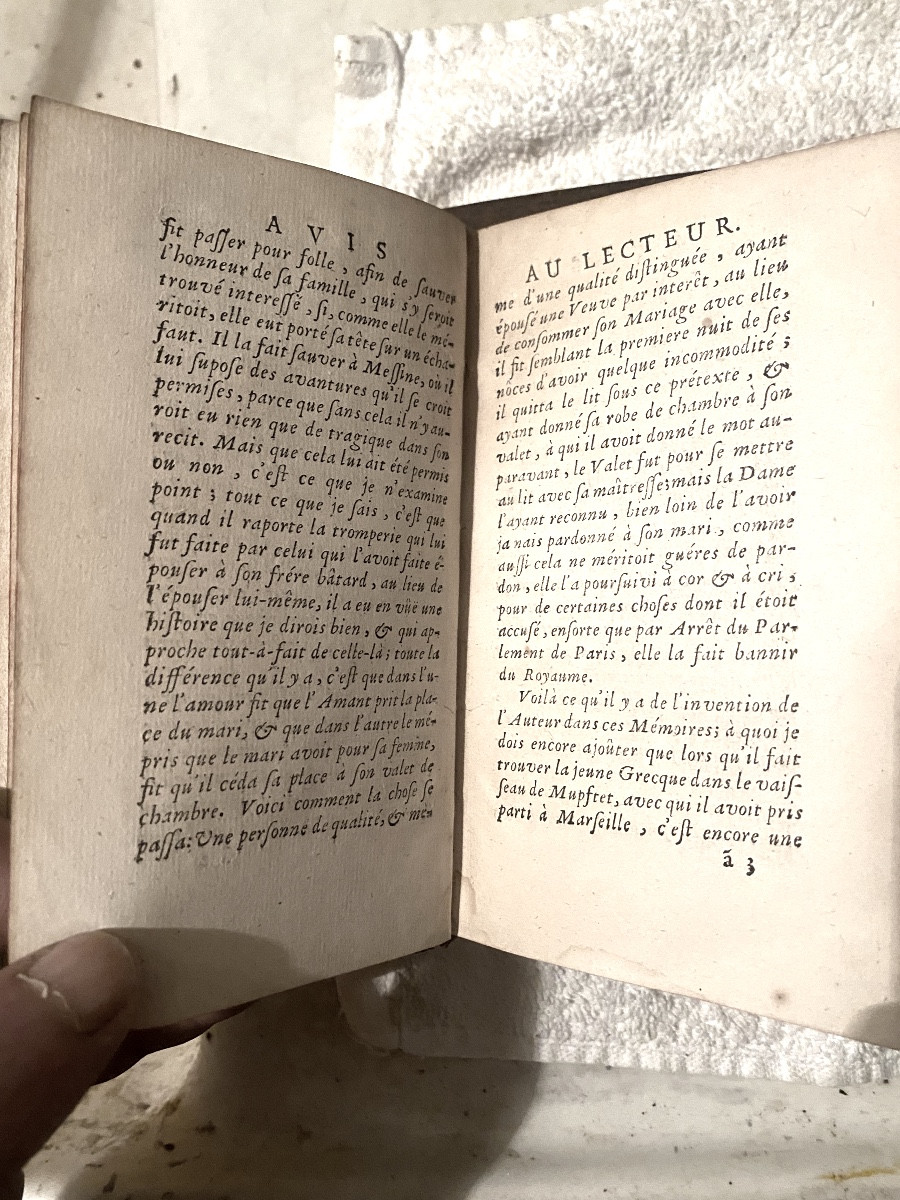 AVIS
fit paſſer pour folle, afin de ſauver
l'honneur de ſa famille, qui s'y ſeroit
trouvé intereſſé, ſi, comme elle le mé-
ritoit, elle eut porté ſa tête ſur un écha-
faut. Il la fait ſauver à Meſſine, où il
lui ſupoſe des avantures qu'il ſe croit
permiſes, parce que ſans cela il n'y au-
roit eu rien que de tragique dans ſon
recit. Mais que cela lui ait été permis
ou non, c'eſt ce que je n'examine
point; tout ce que je ſais, c'eſt que
quand il raporte la tromperie qui lui
fut faite par celui qui l'avoit faite é-
pouſer à ſon frére bâtard, au lieu de
l'épouſer lui-même, il a eu en vûë une
hiſtoire que je dirois bien, & qui ap-
proche tout-à-fait de celle-là; toute la
différence qu'il y a, c'eſt que dans l'u-
ne l'amour fit que l'Amant prit la pla-
ce du mari, & que dans l'autre le mé-
pris que le mari avoit pour ſa femme,
fit qu'il céda ſa place à ſon valet de
chambre. Voici comment la choſe ſe
paſſa: Une perſonne de qualité, & mê-
AU LECTEUR.
me d'une qualité diſtinguée, ayant
épouſé une Veuve par interêt, au lieu
de conſommer ſon Mariage avec elle,
il fit ſemblant la premiere nuit de ſes
nôces d'avoir quelque incommodité;
il quitta le lit ſous ce prétexte, &
ayant donné ſa robe de chambre à ſon
valet, à qui il avoit donné le mot au-
paravant, le Valet fut pour ſe mettre
au lit avec ſa maîtreſſe; mais la Dame
l'ayant reconnu, bien loin de l'avoir
jamais pardonné à ſon mari, comme
auſſi cela ne méritoit guéres de par-
don, elle l'a pourſuivi à cor & à cri,
pour de certaines choſes dont il étoit
accuſé, enſorte que par Arrêt du Par-
lement de Paris, elle la fait bannir
du Royaume.
Voilà ce qu'il y a de l'invention de
l'Auteur dans ces Mémoires; à quoi je
dois encore ajoûter que lors qu'il fait
trouver la jeune Grecque dans le vaiſ-
ſeau de Mupftet, avec qui il avoit pris
parti à Marſeille, c'eſt encore une
ã 3